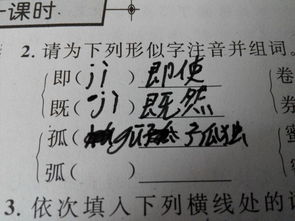 一课时
2. 请为下列形似字注音并组词。
即(jí) 即使
既(jì) 既然
孤(gū) 孤独
弧( )
3. 依次填入下列横线处的